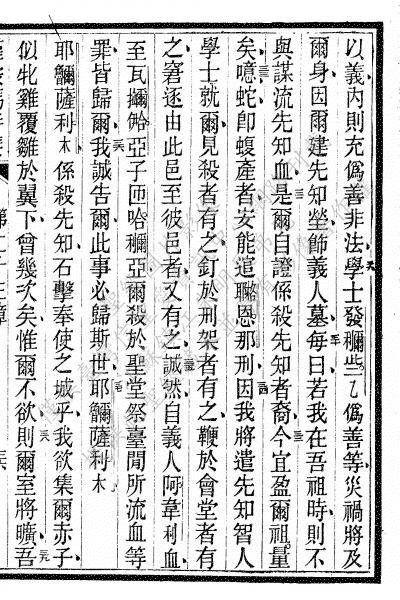 以義內則充僞善非法學士發穪些乀僞善等災禍將及
爾身因爾建先知塋師義人墓每曰若我在吾祖時則不
與謀流先知血是爾自證係殺先知者裔今宜盈爾祖量
矣噫蛇卽蝮產者安能逭聮恩那刑因我將遣先知智人
學士就爾見殺者有之釘於刑架者有之鞭於會堂者有
之窘逐由此邑至彼邑者又有之誠然自義人阿韋利血
至瓦擟鉿亞子匝哈穪亞爾殺於聖堂祭臺閒所流血等
罪皆歸爾我誠告爾此事必歸斯世耶穪薩利木
耶穪薩利木係殺先知石擊奉使之城乎我欲集爾赤子
似牝雞覆雛於翼下曾幾次矣惟爾不欲則爾室將曠吾